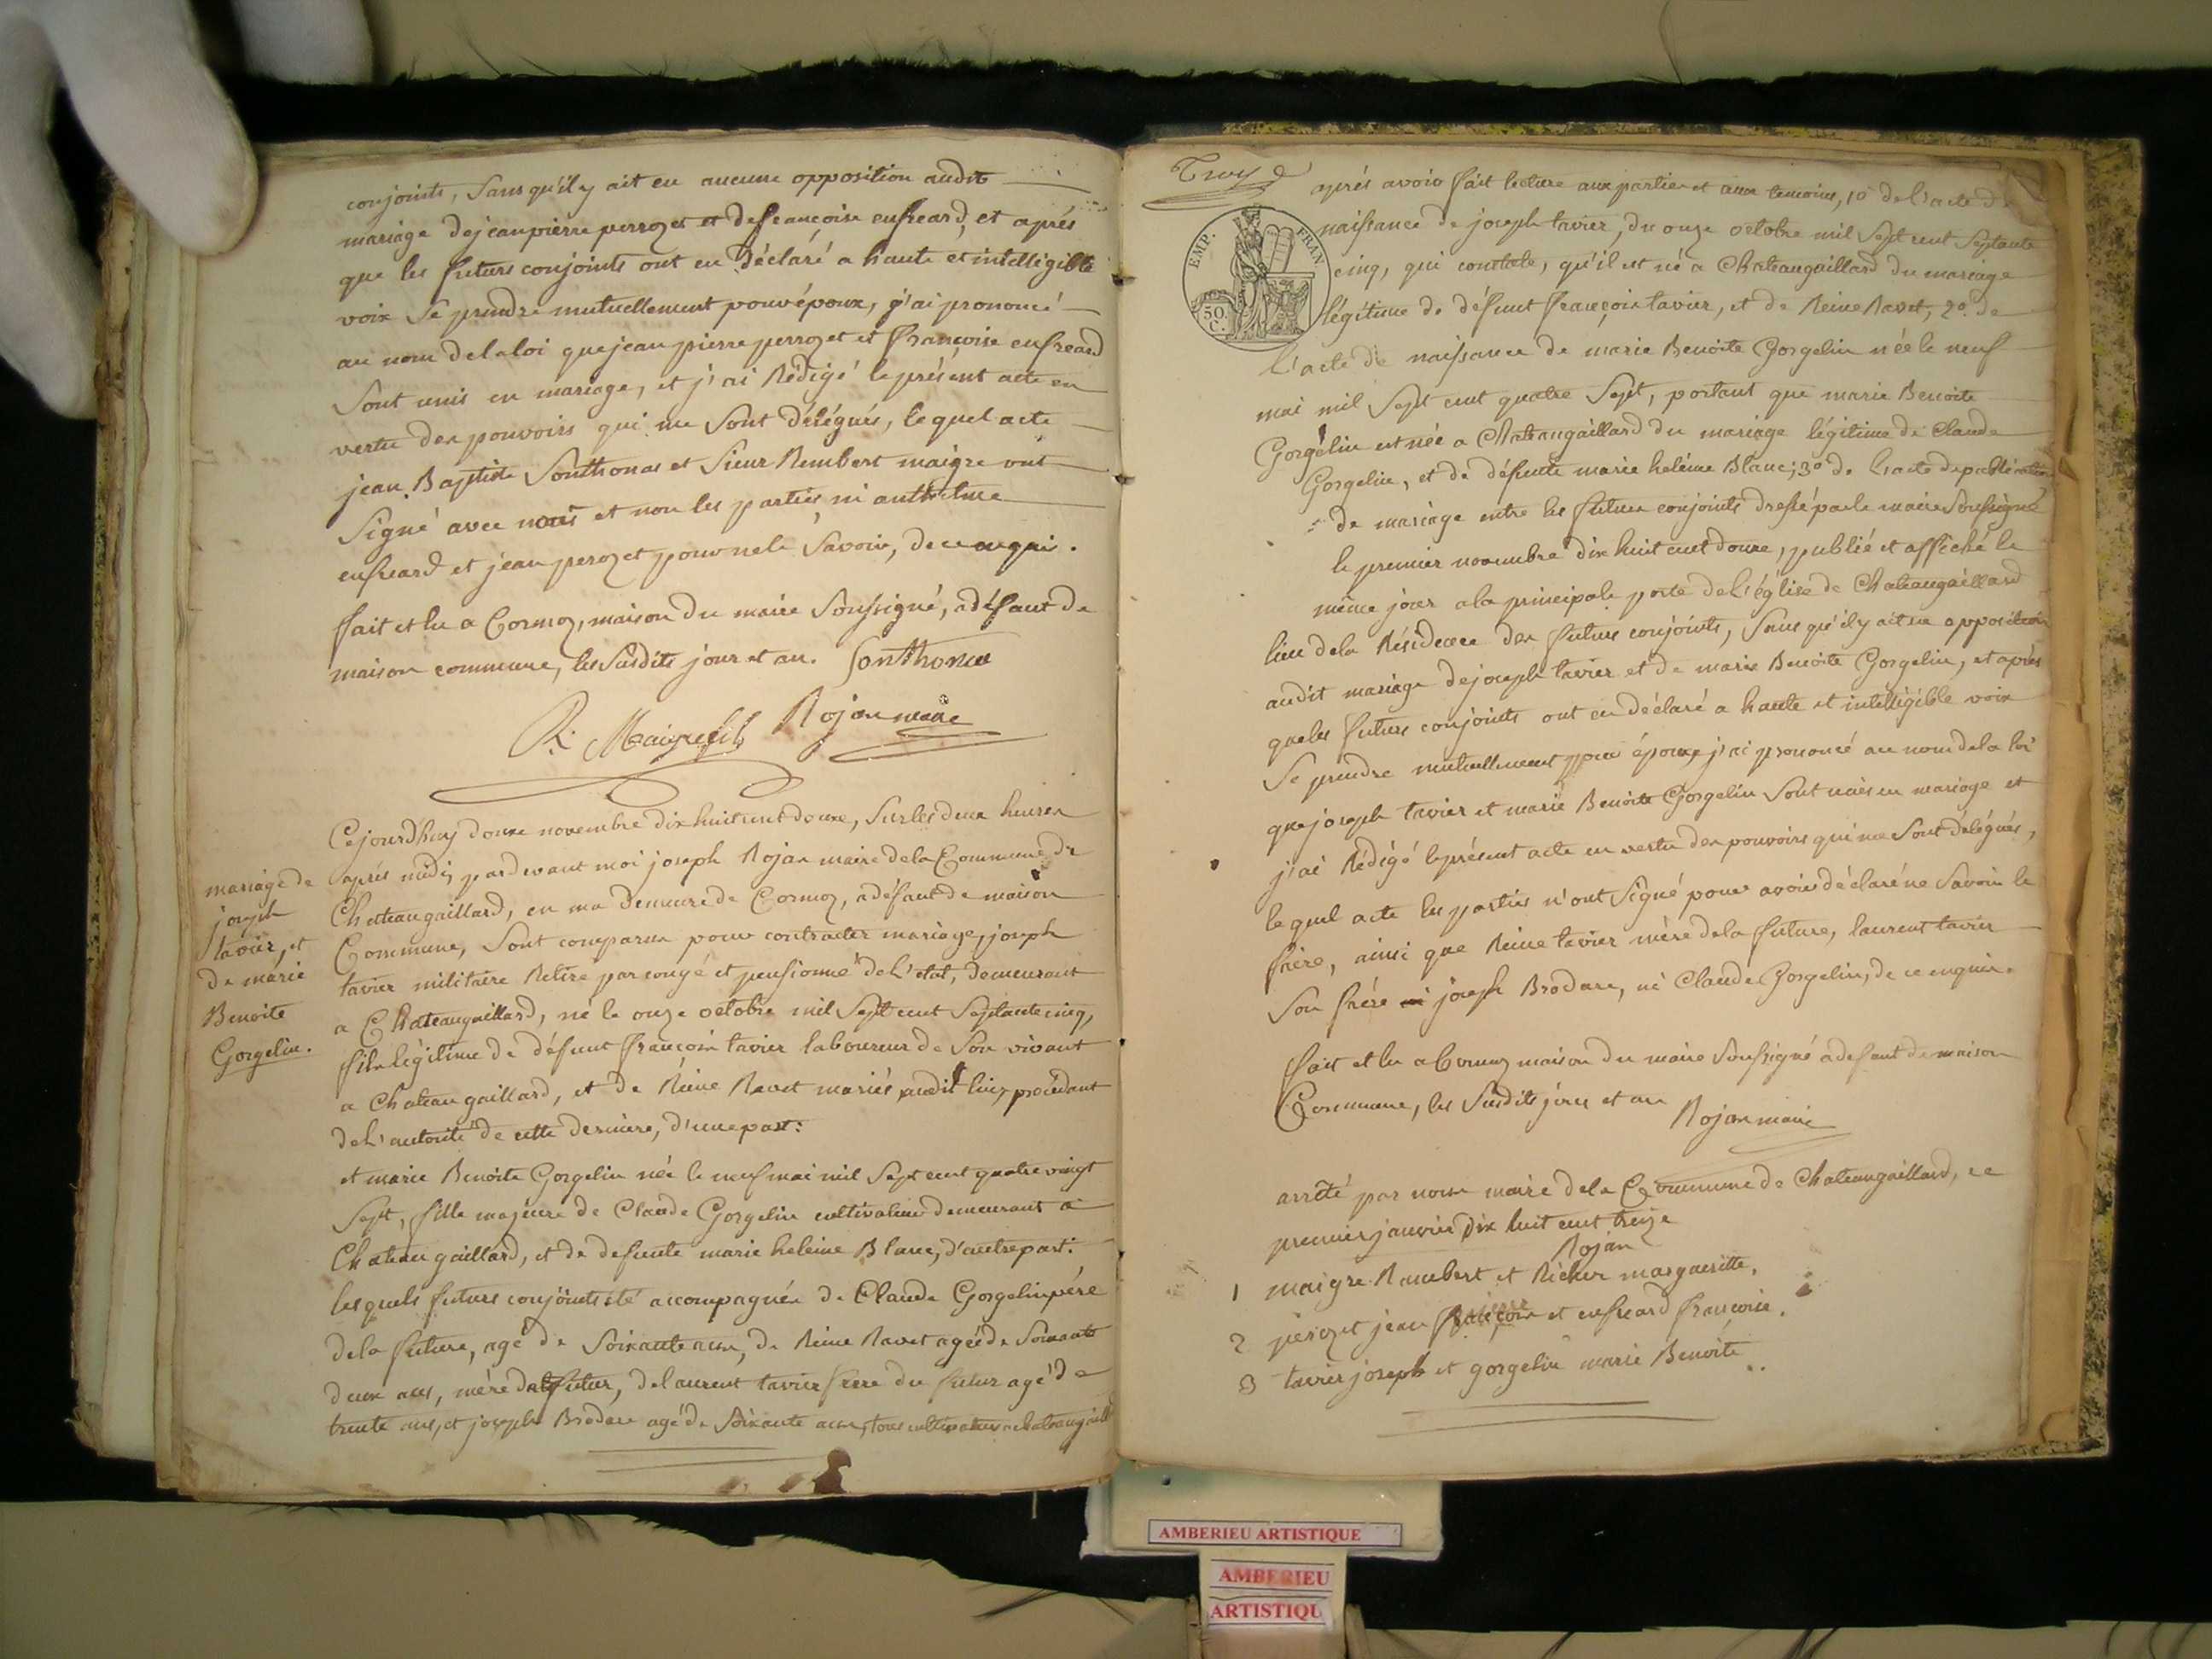 conjoints, Sans qu'il y ait eu aucune opposition audit
mariage de jean pierre perrozet et de françoise enfreard, et après
que les futurs conjoints ont eu déclaré a haute et intelligible
voix Se prendre mutuellement pour époux, j'ai prononcé
au nom de la loi que jean pierre perrozet et françoise enfreard
Sont unis en mariage, et j'ai Rédigé le présent acte en
vertu des pouvoirs qui me Sont délégués, lequel acte
jean Baptiste Sonthonas et Sieur Rembert maigre ont
Signé avec nous et non les parties, ni anthelme
enfreard et jean perozet pour ne le Savoir, de ce enquis.
fait et lu a Cormoz, maison du maire Soussigné, a défaut de
maison commune, les Susdits jour et an. Sonthonas
R. Maigre fils Rojan maire
mariage de
joseph
tavier, et
de marie
Benoite
Gorgelin.
Cejourdhuy douze novembre dix huit cent douze, Sur les deux heures
après midi, pardevant moi joseph Rojan maire de la Commune de
Chateaugaillard, en ma demeure de Cormoz, a défaut de maison
Commune, Sont comparus pour contracter mariage, joseph
tavier militaire Retiré par congé et pensionné de l'etat, demeurant
a Chateaugaillard, né le onze octobre mil Sept cent Septante cinq,
fils légitime de défunt françois tavier laboureur de Son vivant
a Chateaugaillard, et de Reine Ravet mariés audit lieu, procédant
de l'autorité de cette derniere, d'une part:
et marie Benoite Gorgelin née le neuf mai mil Sept cent quatre vingt
Sept, fille majeure de Claude Gorgelin cultivateur demeurant a
Chateaugaillard, et de defunte marie heleine Blanc, d'autre part:
lesquels futurs conjoints été accompagnés de Claude Gorgelin père
de la future, agé de Soixante ans, de Reine Ravet agée de Soixante
deux ans, mère du futur, de laurent tavier frere du futur agé de
trente ans, et joseph Brodare agé de Soixante ans, tous cultivateurs a chateaugaill
Troye
EMP. FRAN
50 C.
après avoir fait lecture aux parties et aux temoins, 1º de l'acte de
naissance de joseph tavier, du onze octobre mil Sept cent Septante
cinq, qui constate, qu'il est né a Chateaugaillard du mariage
légitime de défunt françois tavier, et de Reine Ravet, 2º. de
l'acte de naissance de marie Benoite Gorgelin née le neuf
mai mil Sept cent quatre Sept, portant que marie Benoite
Gorgelin est née a Chateaugaillard du mariage légitime de Claude
Gorgelin, et de défunte marie heléine Blanc; 3º de l'acte de publication
de mariage entre les futurs conjoints dressé par le maire Soussigné
le premier novembre dix huit cent douze, publié et affiché le
même jour a la principale porte de l'église de Chateaugaillard
lieu de la Résidence des futurs conjoints, Sans qu'il y ait eu opposition
audit mariage de joseph tavier et de marie Benoite Gorgelin, et après
que les futurs conjoints ont eu déclaré a haute et intelligible voix
Se prendre mutuellement pour époux, j'ai prononcé au nom de la loi
que joseph tavier et marie Benoite Gorgelin Sont unis en mariage et
j'ai Rédigé le présent acte en vertu des pouvoirs qui me Sont délégués,
lequel acte les parties n'ont Signé pour avoir déclaré ne Savoir le
faire, ainsi que Reine tavier mère de la future, laurent tavier
Son frére joseph Brodare, ni Claude Gorgelin, de ce enquis.
fait et lu a Cormoz maison du maire Soussigné a defaut de maison
Commune, les Susdits jour et an Rojan maire
arrêté par nous maire de la Commune de Chateaugaillard, ce
premier janvier dix huit cent treize
Rojan
1 maigre Rambert et Richer margueritte,
2 perozet jean pierre et enfreard françoise.
3 tavier joseph et gorgelin marie Benoite..
AMBERIEU ARTISTIQUE
AMBERIEU
ARTISTIQU